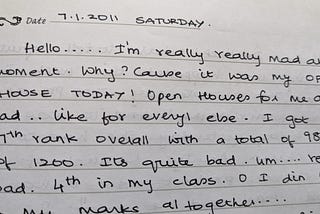 Date 7.1.2011 SATURDAY.
Hello..... I'm really really mad a
moment. Why? Cause it was my OP
HOUSE TODAY! Open Houses for me a
ad.. like for every1 else. I got
7th rank overall with a total of 98
of 1200. Its quite bad. um.... re
bad. 4th in my class. O I din
my marks al together....